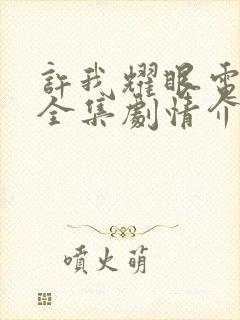 許我耀眼電
全集劇情介
噴火萌